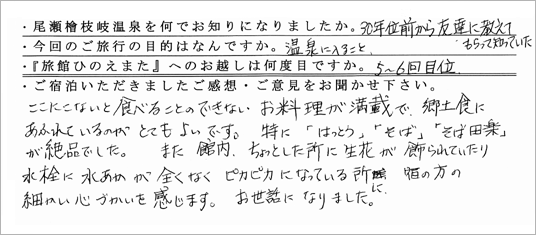 ・尾瀬檜枝岐温泉を何でお知りになりましたか。30年位前から友達に教えて
もらって知っていた
・今回のご旅行の目的はなんですか。温泉に入ること、
・『旅館ひのえまた』へのお越しは何度目ですか。5〜6回目位
・ご宿泊いただきましたご感想・ご意見をお聞かせ下さい。
ここにこないと食べることのできないお料理が満載で、郷土食に
あふれているのがとてもよいです。特に「はっとう」「そば」「そば田楽」
が絶品でした。また館内、ちょっとした所に生花が飾られていたり
水栓に水あかが全くなくピカピカになっている所に宿の方の
細かい心づかいを感じます。お世話になりました。